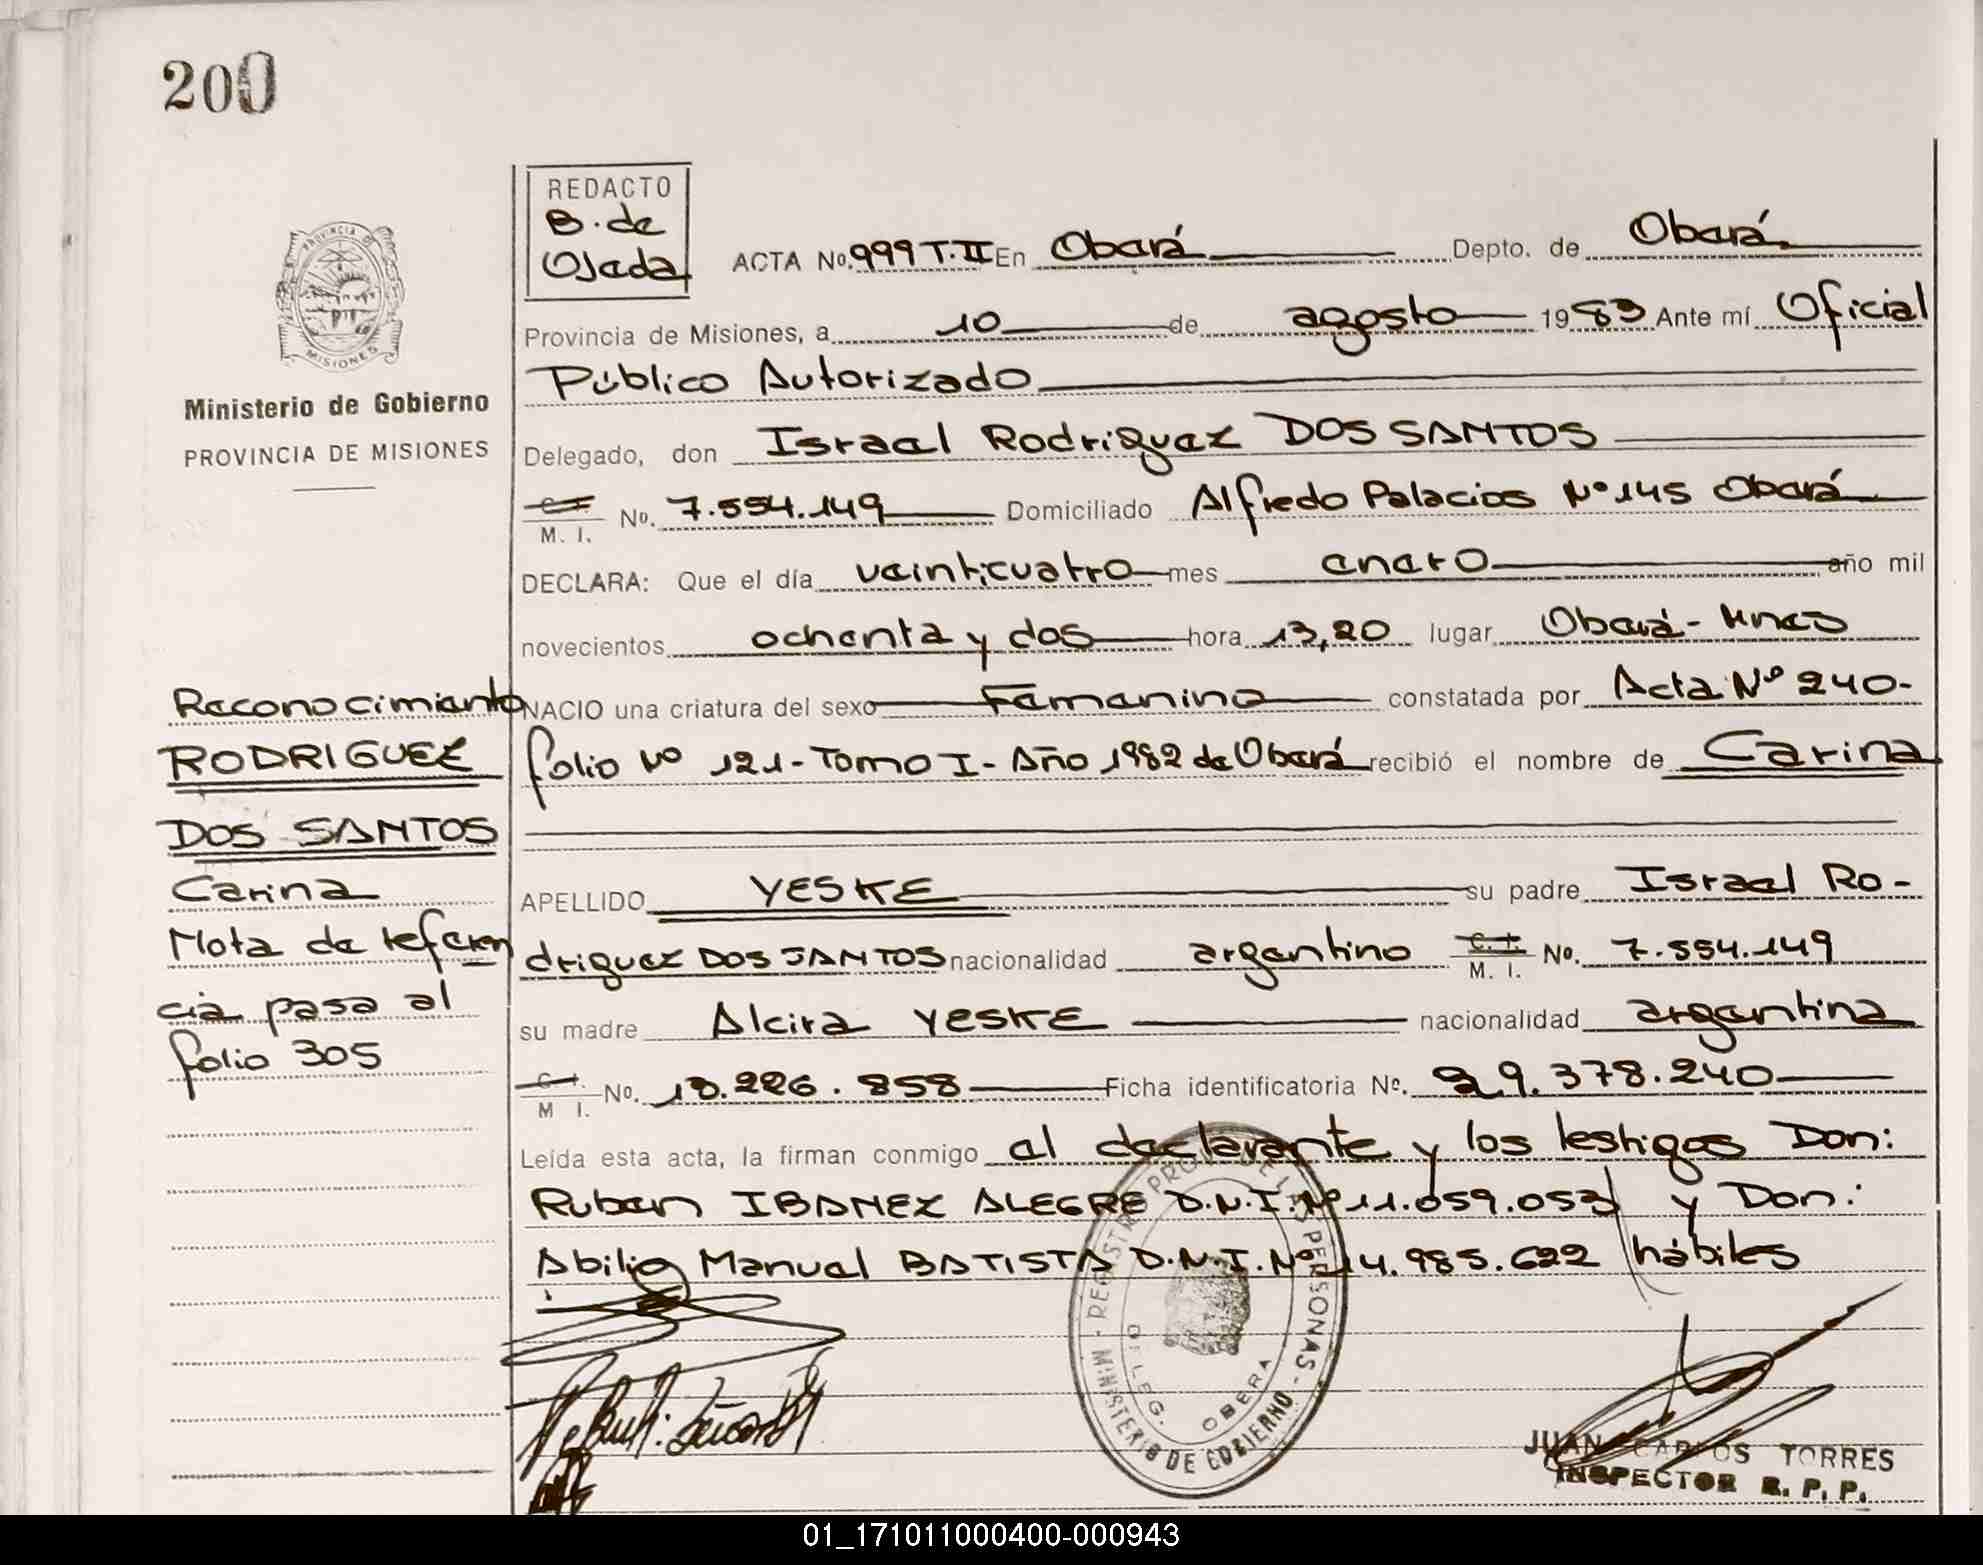 200
REDACTO
B. de
Ojeda
ACTA No. 999 T. II En Oberá Depto. de Oberá
Provincia de Misiones, a 10 de agosto 1983 Ante mí Oficial
Público Autorizado
Delegado, don Israel Rodriguez DOS SANTOS
C. I.
M. I. No. 7.554.149 Domiciliado Alfredo Palacios Nº 145 Oberá
DECLARA: Que el día veinticuatro mes enero año mil
novecientos ochenta y dos hora 13,20 lugar Oberá - Mnes
NACIO una criatura del sexo Femenino constatada por Acta Nº 240-
folio Nº 121 - Tomo I - Año 1982 de Oberá recibió el nombre de Carina
APELLIDO YESKE su padre Israel Ro-
driguez DOS SANTOS nacionalidad argentino C. I. M. I. No. 7.554.149
su madre Alcira YESKE nacionalidad argentina
C. I.
M. I. No. 18.226.858 Ficha identificatoria No. 29.378.240
Leída esta acta, la firman conmigo el declarante y los testigos Don:
Ruben IBANEZ ALEGRE D.N.I. Nº 11.059.053 y Don:
Abilio Manuel BATISTA D.N.I. Nº 14.985.622 hábiles
PROVINCIA DE
MISIONES
Ministerio de Gobierno
PROVINCIA DE MISIONES
Reconocimiento
RODRIGUEZ
DOS SANTOS
Carina
Nota de referen
cia pasa al
folio 305
MINISTERIO DE GOBIERNO - REGISTRO PROV. DE LAS PERSONAS -
DELEG. OBERA
JUAN CARLOS TORRES
INSPECTOR R. P. P.
01_171011000400-000943